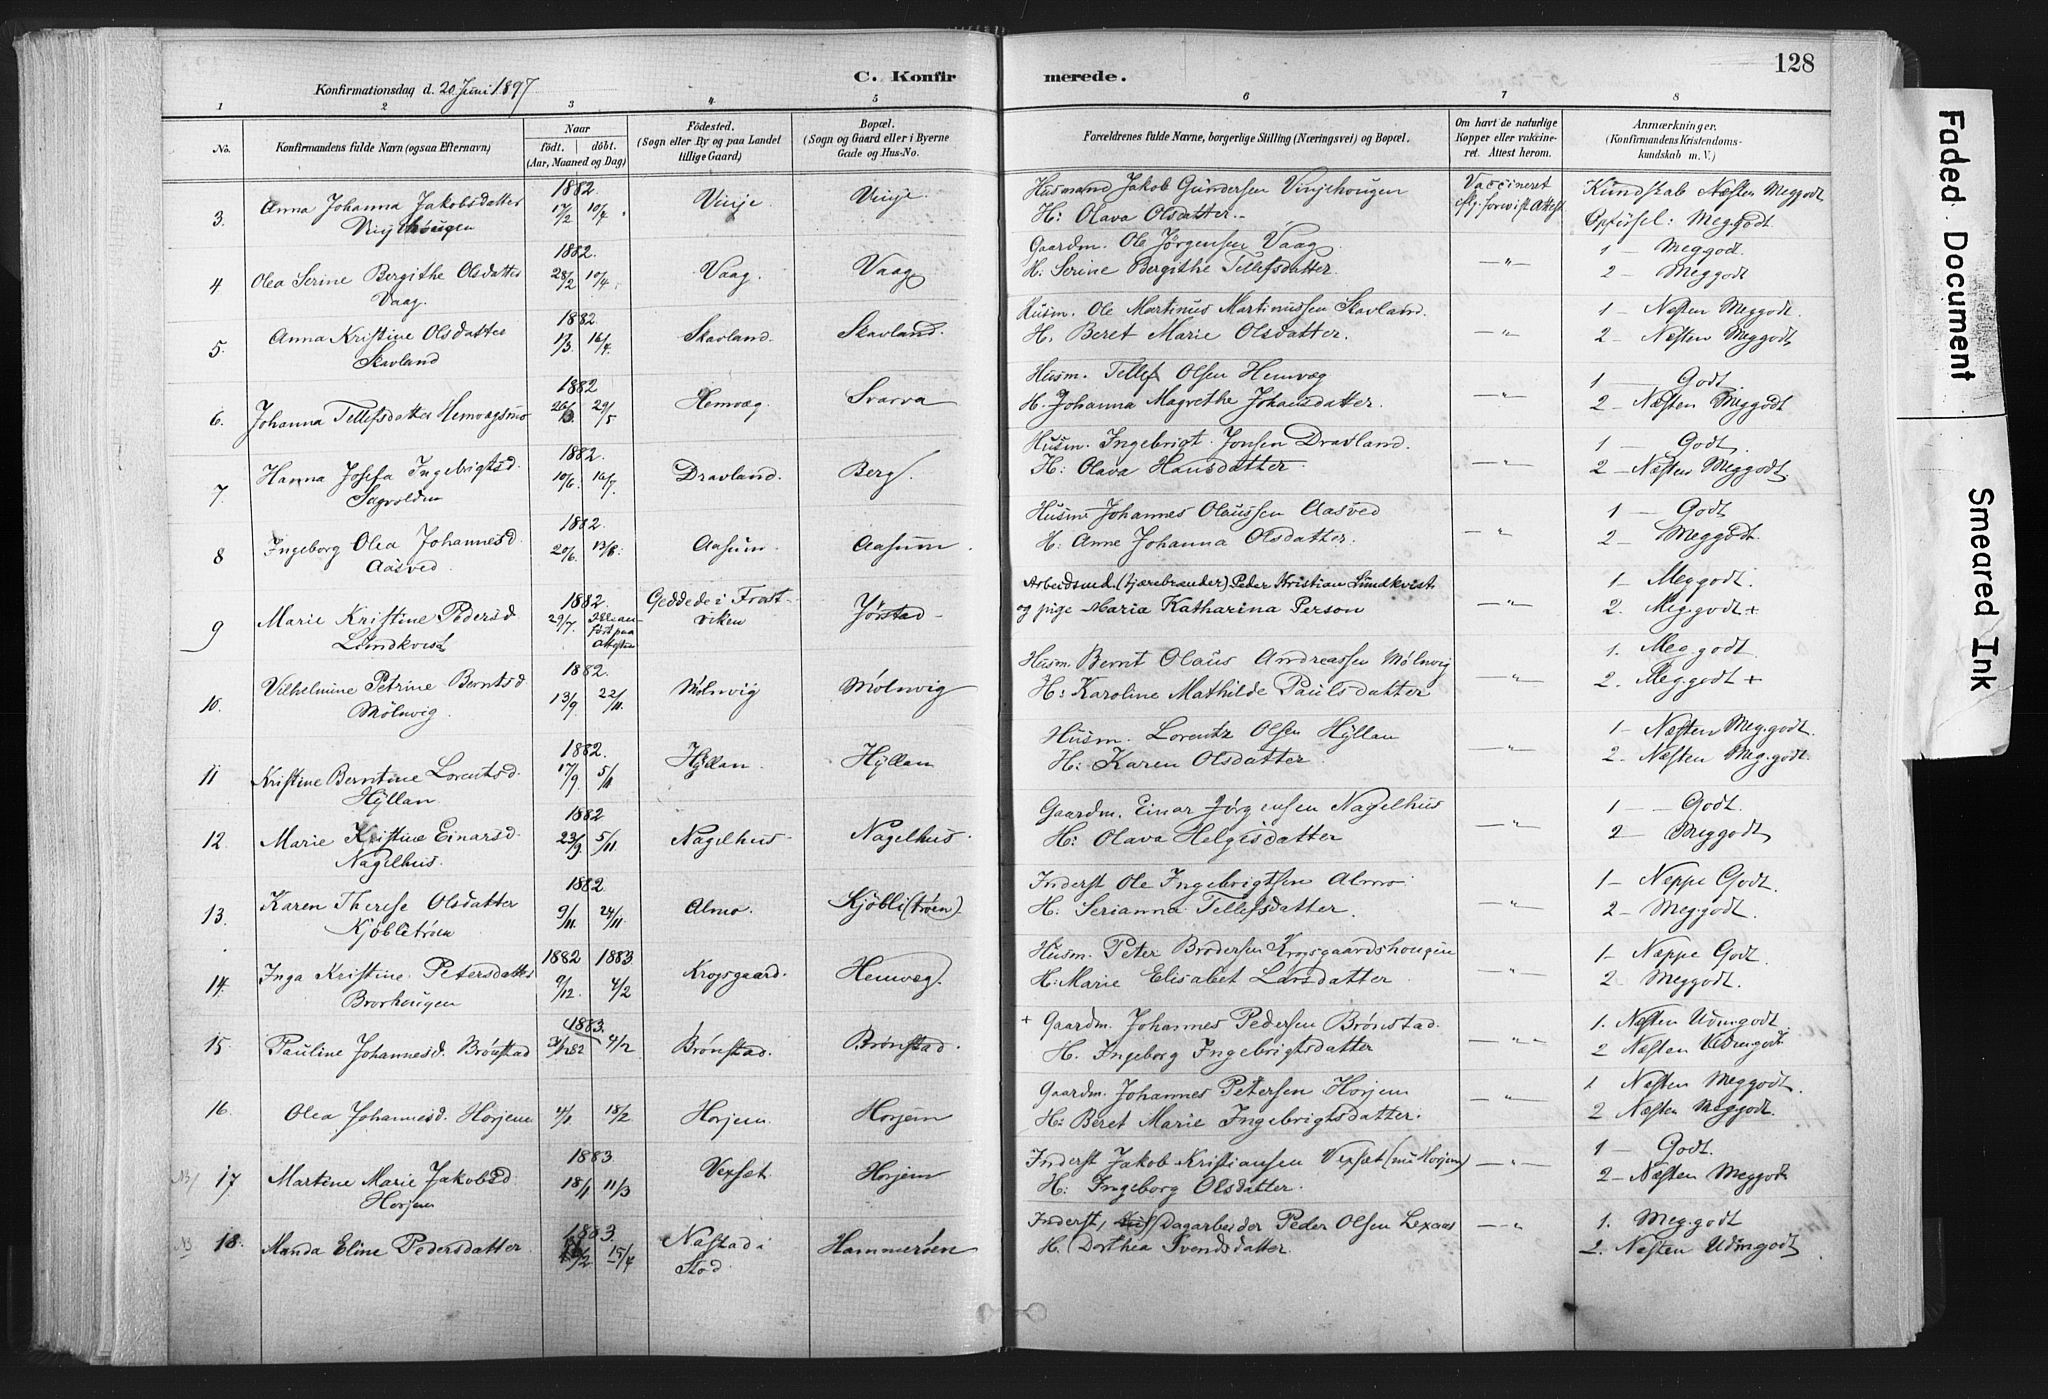 128
C. Konfirmerede.
Konfirmationsdag d. 20 Juni 1897
1 2 3 4 5 6 7 8
No. Konfirmandens fulde Navn (ogsaa Efternavn) Naar født. døbt. (Aar, Maaned og Dag) Fødested. (Sogn eller By og paa Landet tillige Gaard) Bopæl. (Sogn og Gaard eller i Byerne Gade og Hus-No. Forældrenes fulde Navne, borgerlige Stilling (Næringsvei) og Bopæl. Om havt de naturlige Kopper eller vaccineret. Attest herom. Anmærkninger. (Konfirmandens Kristendomskundskab m. V.)
1882.
3 Anna Johanna Jakobsdatter 17/2 10/4 Vinje. Vinje. Husmand Jakob Gundersen Vinjehougen Vaccineret Kundskab Næsten Meggodt
Vinjehougen H: Olava Olsdatter. Opførsel: Meg.godt.
1882.
4 Olea Serine Bergithe Olsdatter 28/2 10/4. Vaag. Vaag Gaardm. Ole Jørgensen Vaag. 1 — Meggodt.
Vaag. H: Serine Bergithe Tellefsdatter. —"— 2 — Meggodt
1882
5. Anna Kristine Olsdatter 17/3 16/4. Skavland. Skavland. Husm. Ole Martinus Martinussen Skavland. 1 — Næsten Meggodt.
Skavland H. Beret Marie Olsdatter. —"— 2 — Næsten Meggodt.
1882
6. Johanna Tellefsdatter Hemvægsmo 26/3 29/5 Hemvæg. Svarva Husm. Tellef Olsen Hemvæg 1 — Godt.
H. Johanna Magrethe Johansdatter. —"— 2 — Næsten Meggodt
1882.
7. Hanna Josefa Ingebrigtsd. 10/6. 16/7. Dravland. Berg. Husm. Ingebrigt Jonsen Dravland. 1 — Godt.
Sagvolden H: Olava Hansdatter. —"— 2 — Næsten Meggodt.
1882.
8 Ingeborg Olea Johannesd. 20/6. 13/8. Aasum. Aasum. Husm Johannes Olaussen Aasved 1 — Godt
Aasved. H: Anne Johanna Olsdatter. —"— 2 — Meggodt.
1882
9 Marie Kristine Pedersd 29/7. Ikke anført paa Attesten Geddede i Frostviken Jørstad. Arbeidsmd. (tjærebrænder) Peder Kristian Lundkvist. 1 — Meg.godt.
Lundkvist og pige Maria Katharina Person —"— 2. Meg.godt +
1882.
10. Vilhelmine Petrine Berntsd 13/9. 22/11. Mølnvig Mølnvig Husm. Bernt Olaus Andreassen Mølnvig 1. Meg.godt
Mølnvig. H: Karoline Mathilde Paulsdatter —"— 2. Meg.godt +
1882.
11 Kristine Berntine Lorentsd. 17/9. 5/11 Hyllan. Hyllan Husm. Lorentz Olsen Hyllan 1 — Næsten Meg.godt.
Hyllan H: Karen Olsdatter. —"— 2. Næsten Meg.godt.
1882
12. Marie Kristine Einarsd. 23/9. 5/11 Nagelhus. Nagelhus. Gaardm. Einar Jørgensen Nagelhus 1 — Godt.
Nagelhus. H: Olava Helgesdatter —"— 2 — Meggodt.
1882
13. Karen Therese Olsdatter 9/11. 24/11. Almo. Kjøbli(trøen). Inderst Ole Ingebrigtsen Almo 1 — Neppe Godt.
Kjøblitrøen H. Serianna Tellefsdatter. —"— 2 — Meg.godt.
1882 1883
14. Inga Kristine Petersdatter 9/12. 4/2 Krogsgaard. Hemvæg. Husm. Peter Brodersen Krogsgaardshougen 1 — Neppe Godt.
Brorhougen H: Marie Elisabet Larsdatter —"— 2 Meggodt.
1883.
15. Pauline Johannesd. Brønstad 4/2 Brønstad. Brønstad. + Gaardm. Johannes Pedersen Brønstad. 1. Næsten Udm.godt
H. Ingeborg Ingebrigtsdatter —"— 2 Næsten Udm.godt.
16. Olea Johannesd. Horjem 4/1. 18/2. Horjem. Horjem Gaardm. Johannes Petersen Horjem 1 Næsten Meggodt.
H: Beret Marie Ingebrigtsdatter. —"— 2 Næsten Meggodt.
1883.
NB/ 17 Martine Marie Jakobsd 18/1 11/3 Vexsæt. Horjem Inderst Jakob Kristiansen Vexsæt (nu Horjem) —"— 1 — Godt.
Horjem H: Ingeborg Olsdatter. 2 — Næsten Meggodt
1883.
NB 18. Manda Eline Pedersdatter 15/4 Nastad i Stod Hammerøen Inderst, Dagarbeider Peder Olsen Lexaas —"— 1. Meg.godt
H. Dorthea Svendsdatter. 2. Næsten Udmgodt.
Faded Document
Smeared Ink